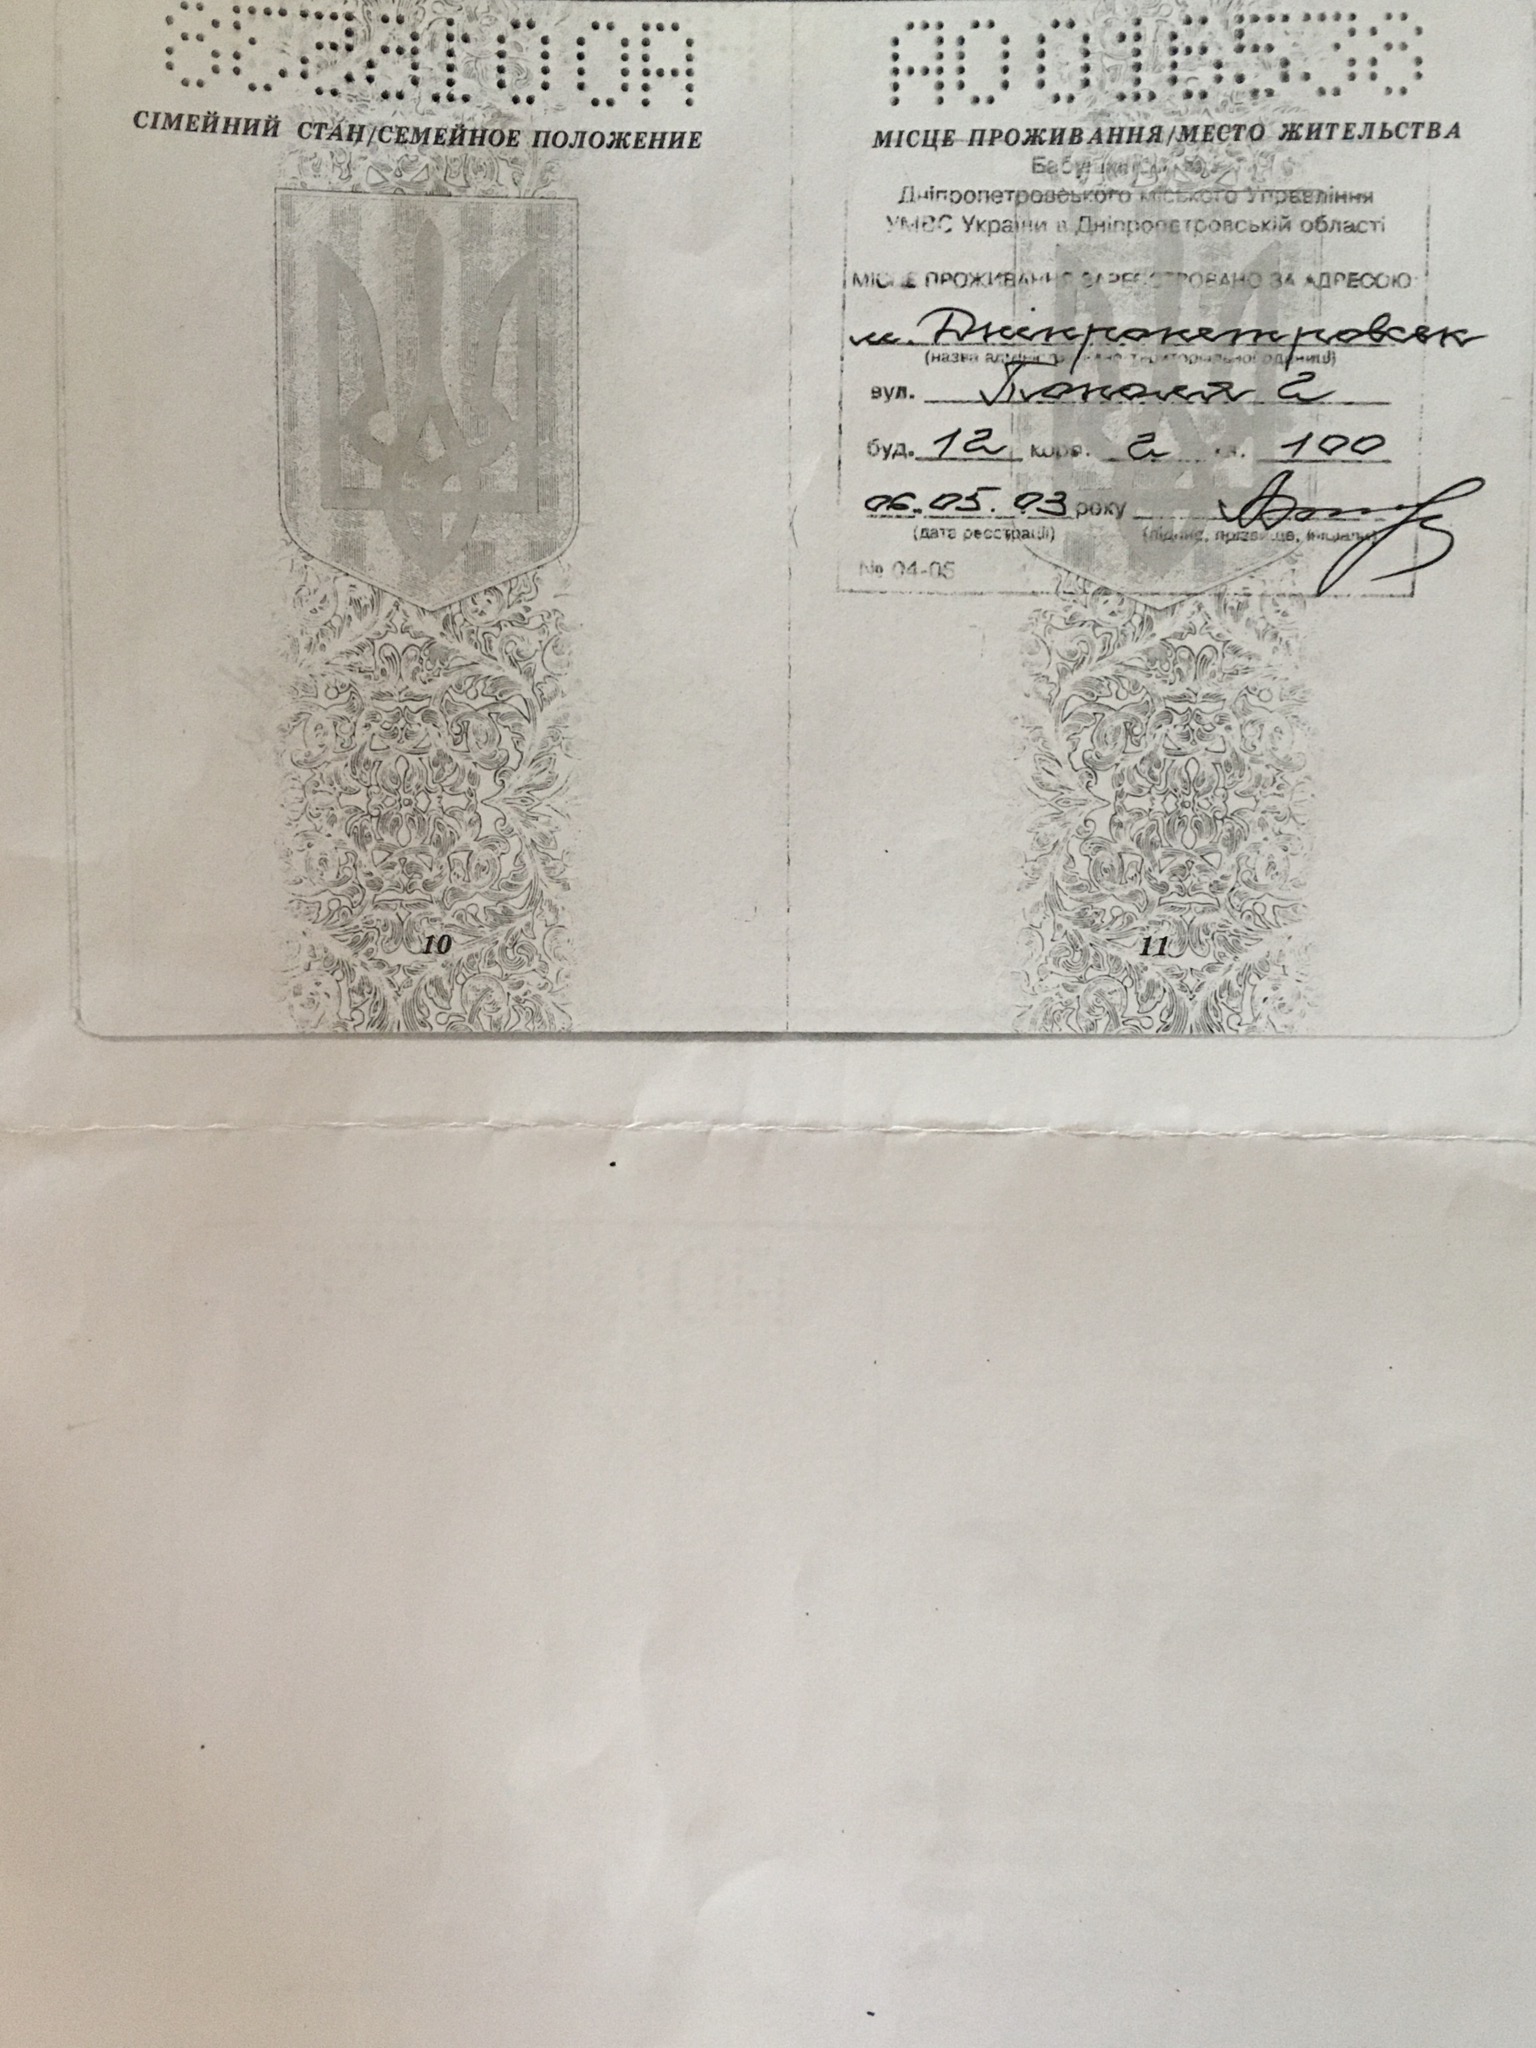 СІМЕЙНИЙ СТАН/СЕМЕЙНОЕ ПОЛОЖЕНИЕ
10
МІСЦЕ ПРОЖИВАННЯ/МЕСТО ЖИТЕЛЬСТВА
Дніпропетровського міського Управління
УМВС України в Дніпропетровській області
МІСЦЕ ПРОЖИВАННЯ ЗАРЕЄСТРОВАНО ЗА АДРЕСОЮ:
м. Дніпропетровськ
(назва адміністративно територіальної одиниці)
вул. Тополя 2
буд. 12 корп. 2 кв. 100
06.05.03 року
(дата реєстрації) (підпис, прізвище, ініціали)
№ 04-05
11